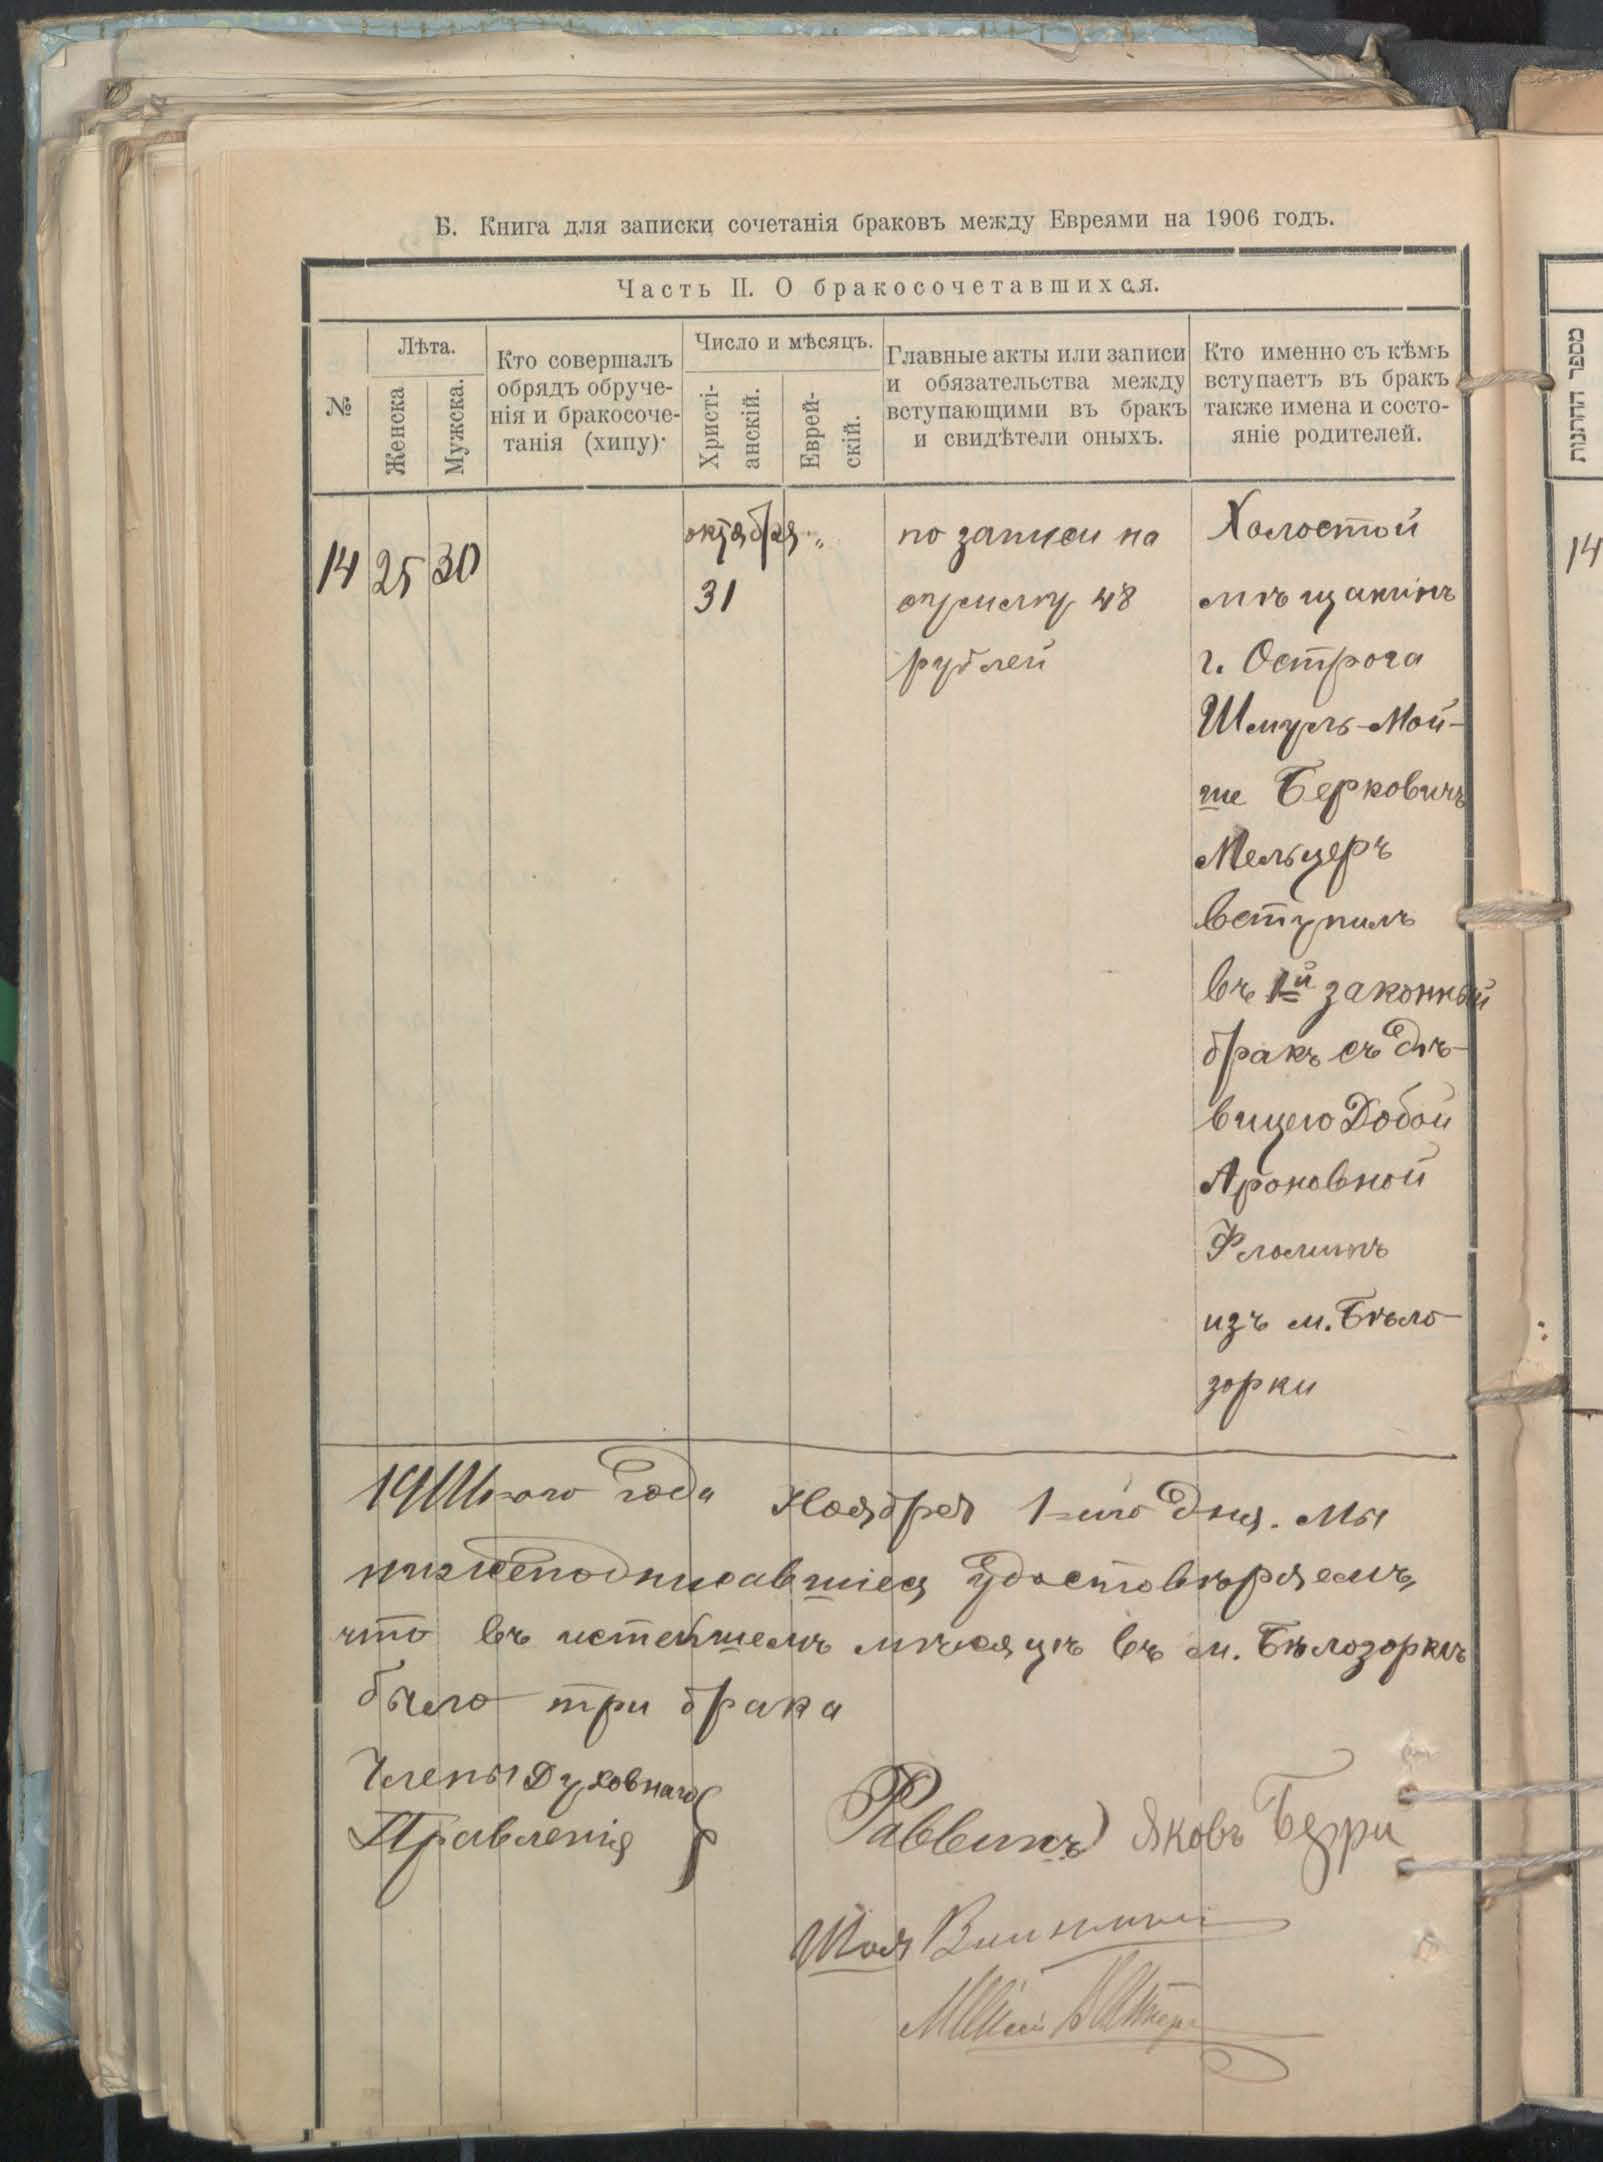 Б. Книга для записки сочетанія браковъ между Евреями на 1906 годъ.
Часть II. О бракосочетавшихся.
№
Лѣта.
Женска
Мужска.
Кто совершалъ
обрядъ обруче-
нія и бракосоче-
танія (хипу).
Число и мѣсяцъ.
Христі-
анскій.
Еврей-
скій.
Главные акты или записи
и обязательства между
вступающими въ бракъ
и свидѣтели оныхъ.
Кто именно съ кѣмъ
вступаетъ въ бракъ
также имена и состо-
яніе родителей.
מספר החתנות
14 25 30
октября „
31
по записи на
сумму 48
рублей
Холостой
мѣщанинъ
г. Острога
Шмуль-Мой-
ше Берковичъ
Мельцеръ
вступилъ
въ 1й законный
бракъ съ дѣ-
вицею Добой
Ароновной
изъ м. Бѣло-
зорки
14
года Ноября 1-го дня. Мы
нижеподписавшіеся удостовѣряемъ,
что въ истекшемъ мѣсяцѣ въ м. Бѣлозоркѣ
было три брака
Члены Духовнаго
Правленія
Раввинъ Яковъ
Шая